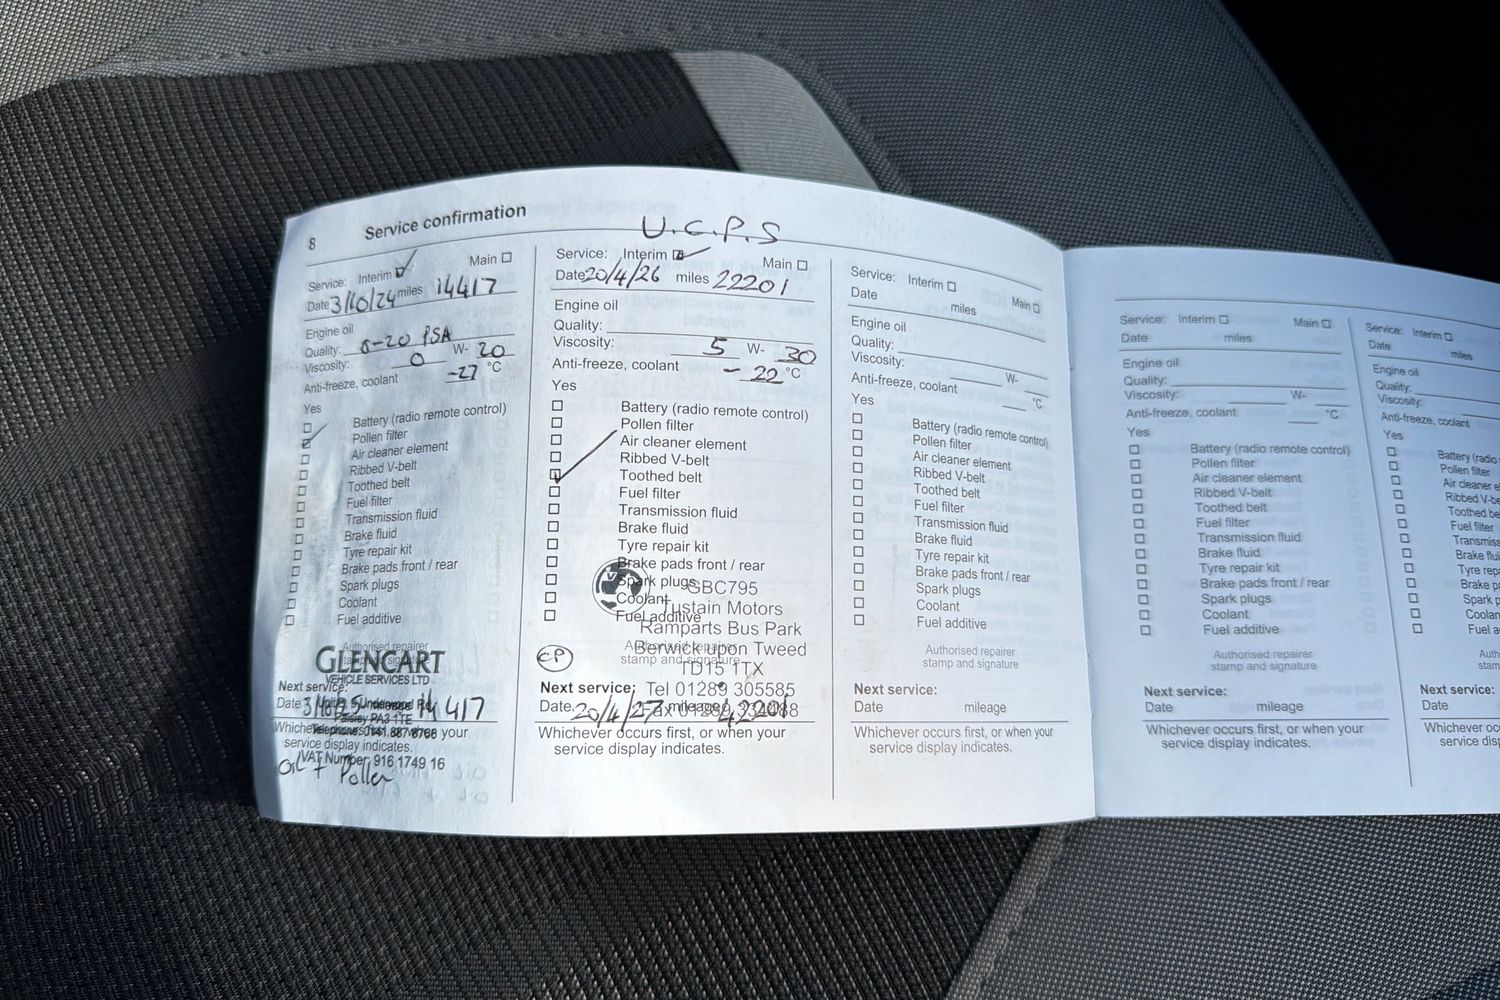 8 Service confirmation
U.C.P.S
Service: Interim Main
Date 3/10/24 miles 14417
Engine oil
Quality: 0-20 PSA
Viscosity: 0 W- 20
Anti-freeze, coolant -27 °C
Yes
Battery (radio remote control)
Pollen filter
Air cleaner element
Ribbed V-belt
Toothed belt
Fuel filter
Transmission fluid
Brake fluid
Tyre repair kit
Brake pads front / rear
Spark plugs
Coolant
Fuel additive
Authorised repairer
stamp and signature
GLENCART
VEHICLE SERVICES LTD
Next service:
Date 3/10/25 14417
Underwood Rd
Paisley PA3 1TE
Whichever occurs first, or when your
Telephone: 0141 887 8766
service display indicates.
VAT Number 916 1749 16
oil + Pollen
Service: Interim Main
Date 20/4/26 miles 22201
Engine oil
Quality:
Viscosity: 5 W- 30
Anti-freeze, coolant - 22 °C
Yes
Battery (radio remote control)
Pollen filter
Air cleaner element
Ribbed V-belt
Toothed belt
Fuel filter
Transmission fluid
Brake fluid
Tyre repair kit
Brake pads front / rear
Spark plugs
Coolant
Fuel additive
GBC795
Tustain Motors
Ramparts Bus Park
Berwick upon Tweed
TD15 1TX
Tel 01289 305585
Authorised repairer
stamp and signature
CP
Next service:
Date 20/4/27 mileage
Whichever occurs first, or when your
service display indicates.
Service: Interim Main
Date miles
Engine oil
Quality:
Viscosity: W-
Anti-freeze, coolant °C
Yes
Battery (radio remote control)
Pollen filter
Air cleaner element
Ribbed V-belt
Toothed belt
Fuel filter
Transmission fluid
Brake fluid
Tyre repair kit
Brake pads front / rear
Spark plugs
Coolant
Fuel additive
Authorised repairer
stamp and signature
Next service:
Date mileage
Whichever occurs first, or when your
service display indicates.
Service: Interim Main
Date miles
Engine oil
Quality:
Viscosity: W-
Anti-freeze, coolant °C
Yes
Battery (radio remote control)
Pollen filter
Air cleaner element
Ribbed V-belt
Toothed belt
Fuel filter
Transmission fluid
Brake fluid
Tyre repair kit
Brake pads front / rear
Spark plugs
Coolant
Fuel additive
Authorised repairer
stamp and signature
Next service:
Date mileage
Whichever occurs first, or when your
service display indicates.
Service: Interim
Date miles
Engine oil
Quality:
Viscosity:
Anti-freeze, coolant
Yes
Battery (radio
Pollen filter
Air cleaner
Ribbed V-b
Toothed be
Fuel filter
Transmiss
Brake flu
Tyre rep
Brake p
Spark p
Coolan
Fuel a
Auth
stam
Next service:
Date
Whichever occ
service dis